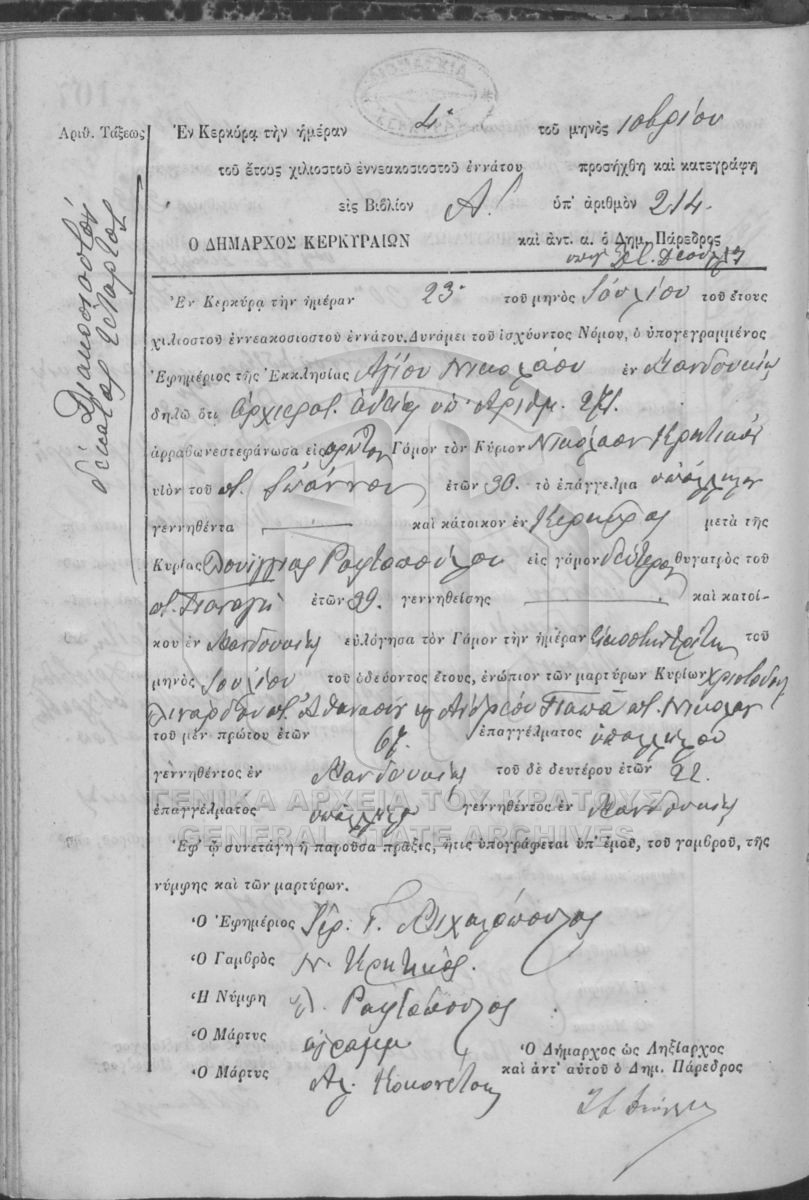 Ἀριθ. Τάξεως
Διακοσιοστόν
δέκατον τέταρτον
Ἐν Κερκύρᾳ τὴν ἡμέραν 4 τοῦ μηνὸς 10βρίου
τοῦ ἔτους χιλιοστοῦ ἐννεακοσιοστοῦ ἐννάτου προσήχθη καὶ κατεγράφη
εἰς Βιβλίον Α! ὑπ' ἀριθμὸν 214.
Ὁ ΔΗΜΑΡΧΟΣ ΚΕΡΚΥΡΑΙΩΝ καὶ ἀντ. α. ὁ Δημ. Πάρεδρος
Ἐν Κερκύρᾳ τὴν ἡμέραν 23 τοῦ μηνὸς Ἰουλίου τοῦ ἔτους
χιλιοστοῦ ἐννεακοσιοστοῦ ἐννάτου. Δυνάμει τοῦ ἰσχύοντος Νόμου, ὁ ὑπογεγραμμένος
Ἐφημέριος τῆς Ἐκκλησίας Ἁγίου Νικολάου ἐν Μανδουκίῳ
δηλῶ ὅτι ἀρχιερατ. ἀδείᾳ ὑπ' ἀριθμ. 271.
ἀρραβωνεστεφάνωσα εἰς πρῶτον Γάμον τὸν Κύριον Νικόλαον Κρητικόν
υἱὸν τοῦ ποτ. Ἰωάννου ἐτῶν 30. τὸ ἐπάγγελμα ὑπάλληλον
γεννηθέντα καὶ κάτοικον ἐν Κερκύρᾳ μετὰ τῆς
Κυρίας Ραφτοπούλου εἰς γάμον δεύτερον θυγατρὸς τοῦ
ποτ. Παναγῆ ἐτῶν 39. γεννηθείσης καὶ κατοί-
κου ἐν Μανδουκίῳ εὐλόγησα τὸν Γάμον τὴν ἡμέραν εἰκοστὴν τρίτην τοῦ
μηνὸς Ἰουλίου τοῦ ὁδεύοντος ἔτους, ἐνώπιον τῶν μαρτύρων Κυρίων Χριστοδούλου
Λιναρδου ποτ. Ἀθανασίου καὶ Ἀνδρέου Παπᾶ ποτ. Νικολάου
τοῦ μὲν πρώτου ἐτῶν 67. ἐπαγγέλματος ὑπαλλήλου
γεννηθέντος ἐν Μανδουκίῳ τοῦ δὲ δευτέρου ἐτῶν 22.
ἐπαγγέλματος ὑπαλλήλου γεννηθέντος ἐν Μανδουκίῳ
ΓΕΝΙΚΑ ΑΡΧΕΙΑ ΤΟΥ ΚΡΑΤΟΥΣ
GENERAL STATE ARCHIVES
Ἐφ' ᾧ συνετάγη ἡ παροῦσα πρᾶξις, ἥτις ὑπογράφεται ὑπ' ἐμοῦ, τοῦ γαμβροῦ, τῆς
νύμφης καὶ τῶν μαρτύρων.
Ὁ Ἐφημέριος Ἱερ. Γ. Μιχαλόπουλος
Ὁ Γαμβρὸς Ν. Κρητικός.
Ἡ Νύμφη Ραφτοπούλου
Ὁ Μάρτυς ἀγράμμ
Ὁ Μάρτυς
Ὁ Δήμαρχος ὡς Ληξίαρχος
καὶ ἀντ' αὐτοῦ ὁ Δημ. Πάρεδρος